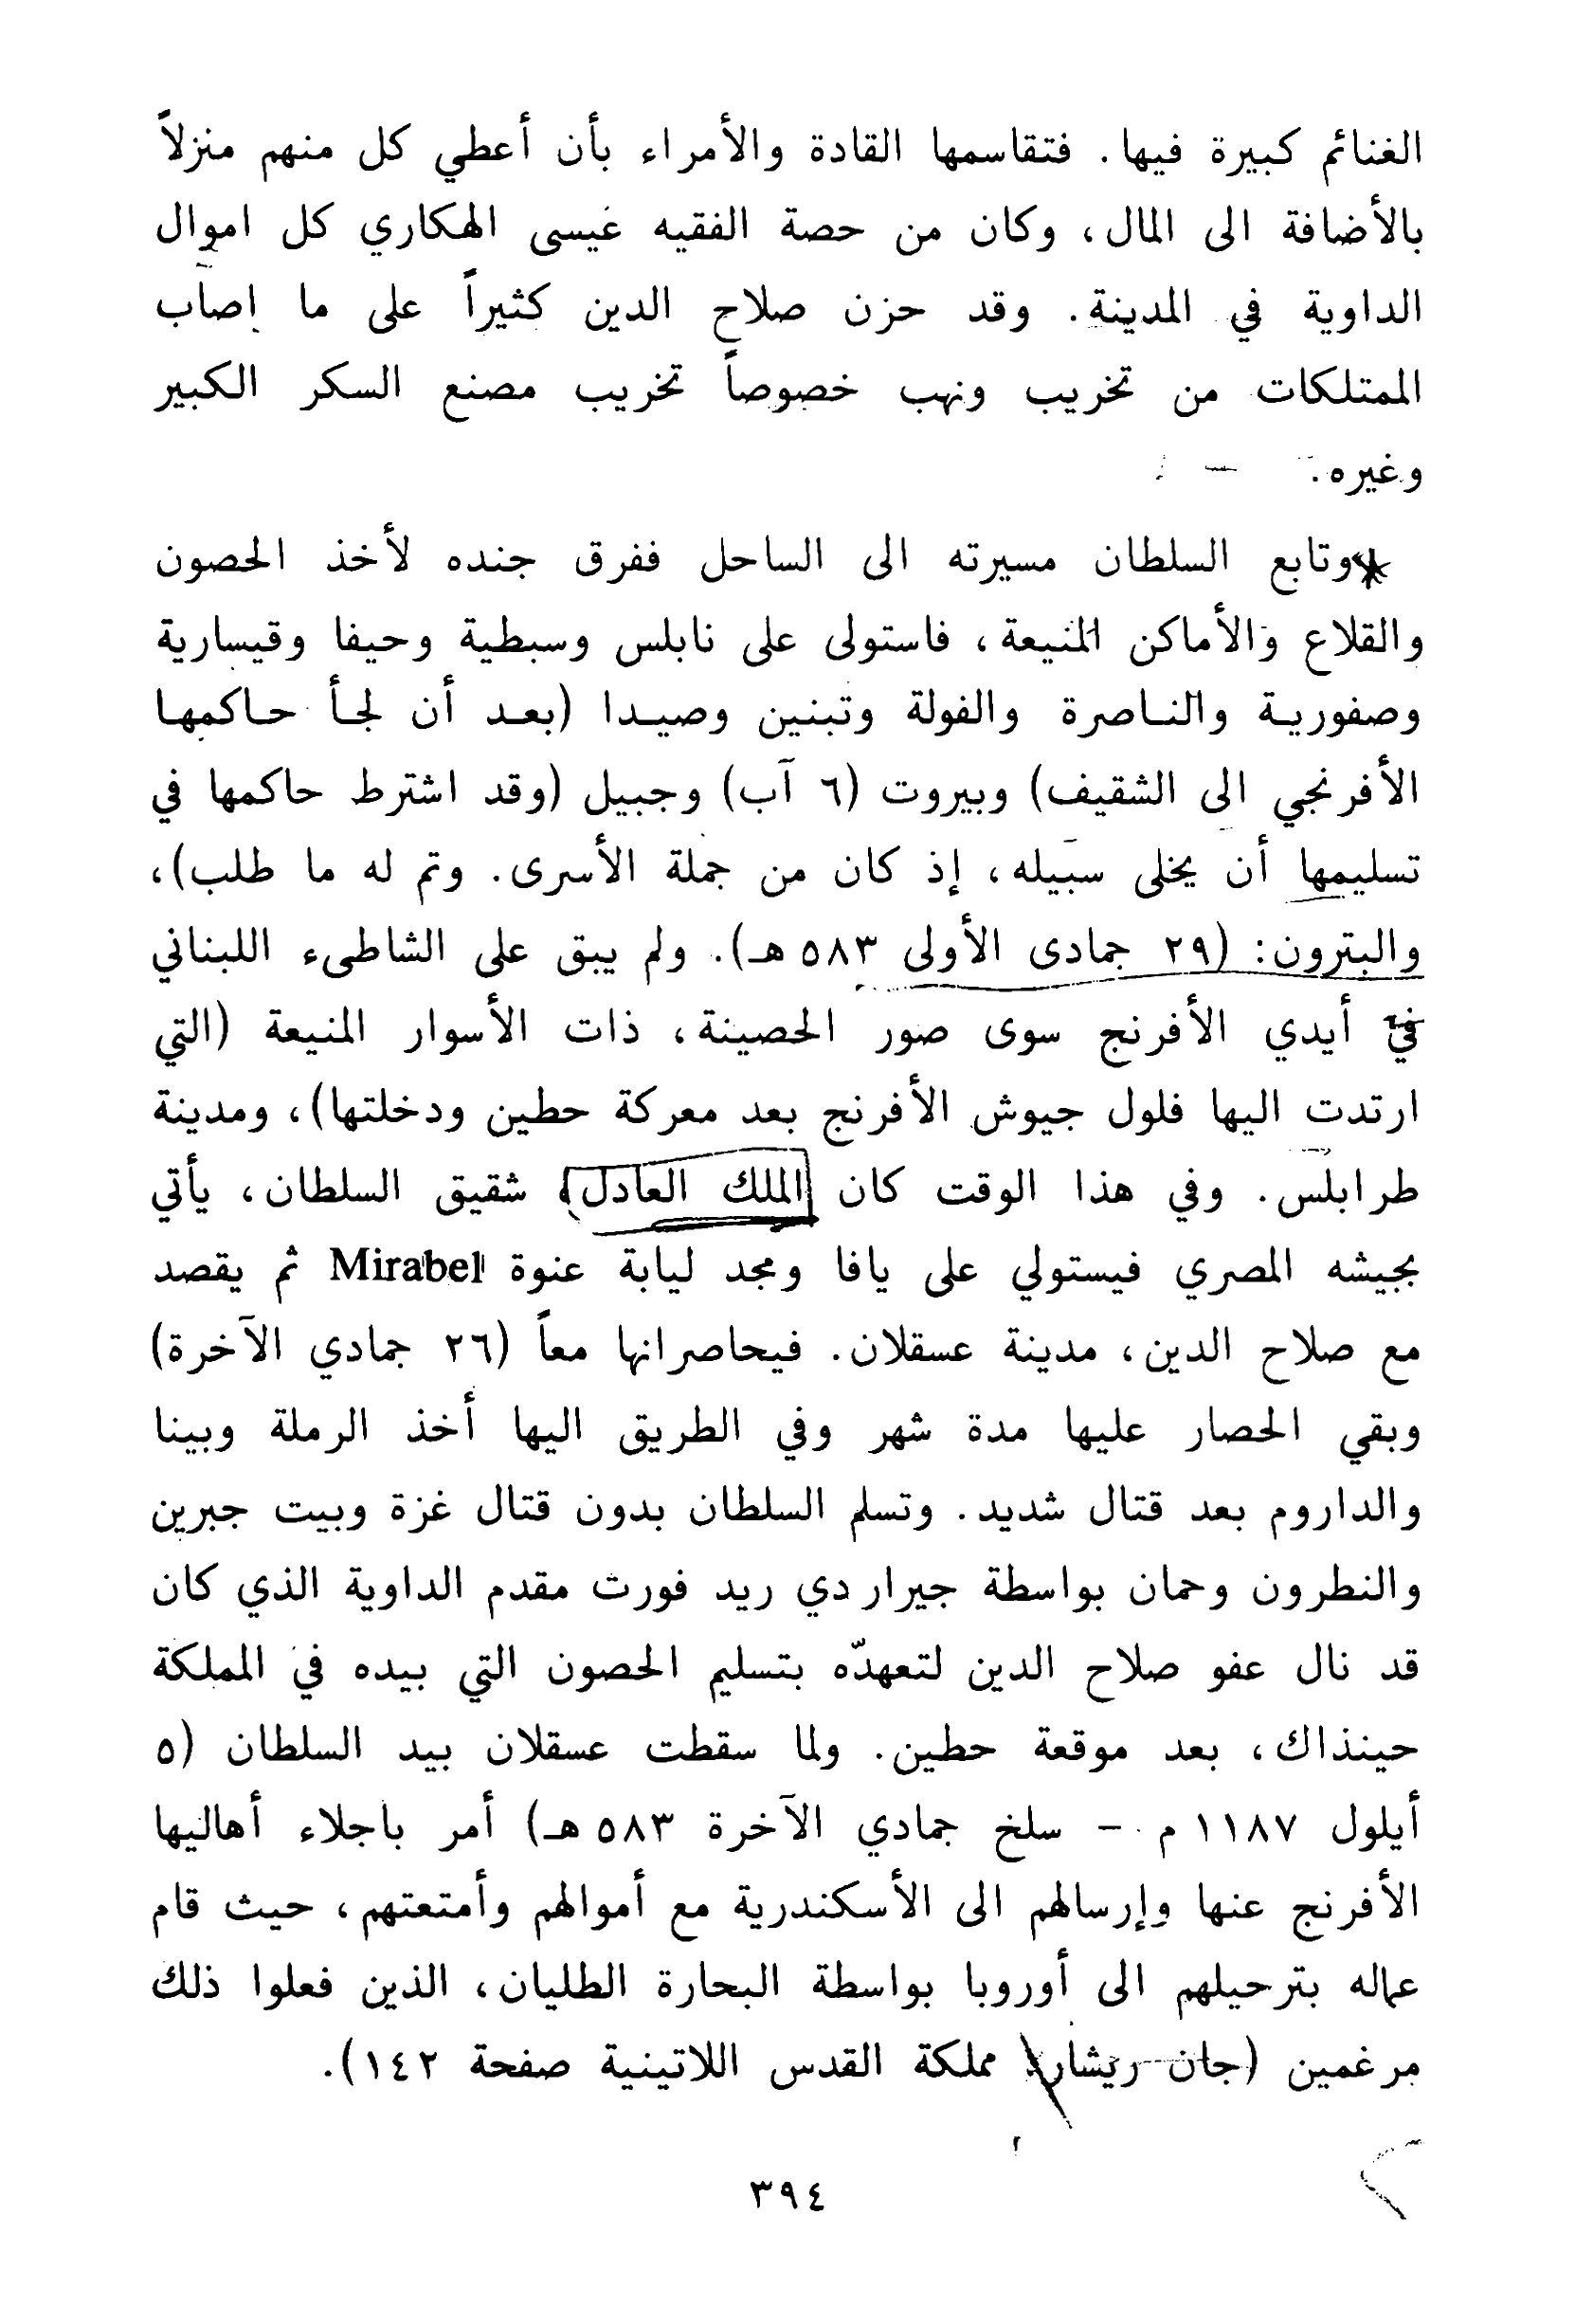 الغنائم كبيرة فيها. فتقاسمها القادة والأمراء بأن أعطي كل منهم منزلاً
بالأضافة الى المال، وكان من حصة الفقيه عيسى الهكاري كل اموال
الداوية في المدينة. وقد حزن صلاح الدين كثيراً على ما إصاب
الممتلكات من تخريب ونهب خصوصاً تخريب مصنع السكر الكبير
وغيره.
وتابع السلطان مسيرته الى الساحل ففرق جنده لأخذ الحصون
والقلاع والأماكن المنيعة، فاستولى على نابلس وسبطية وحيفا وقيسارية
وصفورية والناصرة والفولة وتبنين وصيدا (بعد أن لجأ حاكمها
الأفرنجي الى الشقيف) وبيروت (٦ آب) وجبيل (وقد اشترط حاكمها في
تسليمها أن يخلى سبيله، إذ كان من جملة الأسرى. وتم له ما طلب)،
والبترون: (٢٩ جمادى الأولى ٥٨٣ هـ). ولم يبق على الشاطىء اللبناني
في أيدي الأفرنج سوى صور الحصينة، ذات الأسوار المنيعة (التي
ارتدت اليها فلول جيوش الأفرنج بعد معركة حطين ودخلتها)، ومدينة
طرابلس. وفي هذا الوقت كان الملك العادل، شقيق السلطان، يأتي
بجيشه المصري فيستولي على يافا ومجد ليابة عنوة Mirabel ثم يقصد
مع صلاح الدين، مدينة عسقلان. فيحاصرانها معاً (٢٦ جمادي الآخرة)
وبقي الحصار عليها مدة شهر وفي الطريق اليها أخذ الرملة وبينا
والداروم بعد قتال شديد. وتسلم السلطان بدون قتال غزة وبيت جبرين
والنطرون وحمان بواسطة جيرار دي ريد فورت مقدم الداوية الذي كان
قد نال عفو صلاح الدين لتعهدّه بتسليم الحصون التي بيده في المملكة
حينذاك، بعد موقعة حطين. ولما سقطت عسقلان بيد السلطان (٥
أيلول ١١٨٧ م - سلخ جمادي الآخرة ٥٨٣ هـ) أمر باجلاء أهاليها
الأفرنج عنها وإرسالهم الى الأسكندرية مع أموالهم وأمتعتهم، حيث قام
عماله بترحيلهم الى أوروبا بواسطة البحارة الطليان، الذين فعلوا ذلك
مرغمين (جان ريشارد مملكة القدس اللاتينية صفحة ١٤٢).
٣٩٤